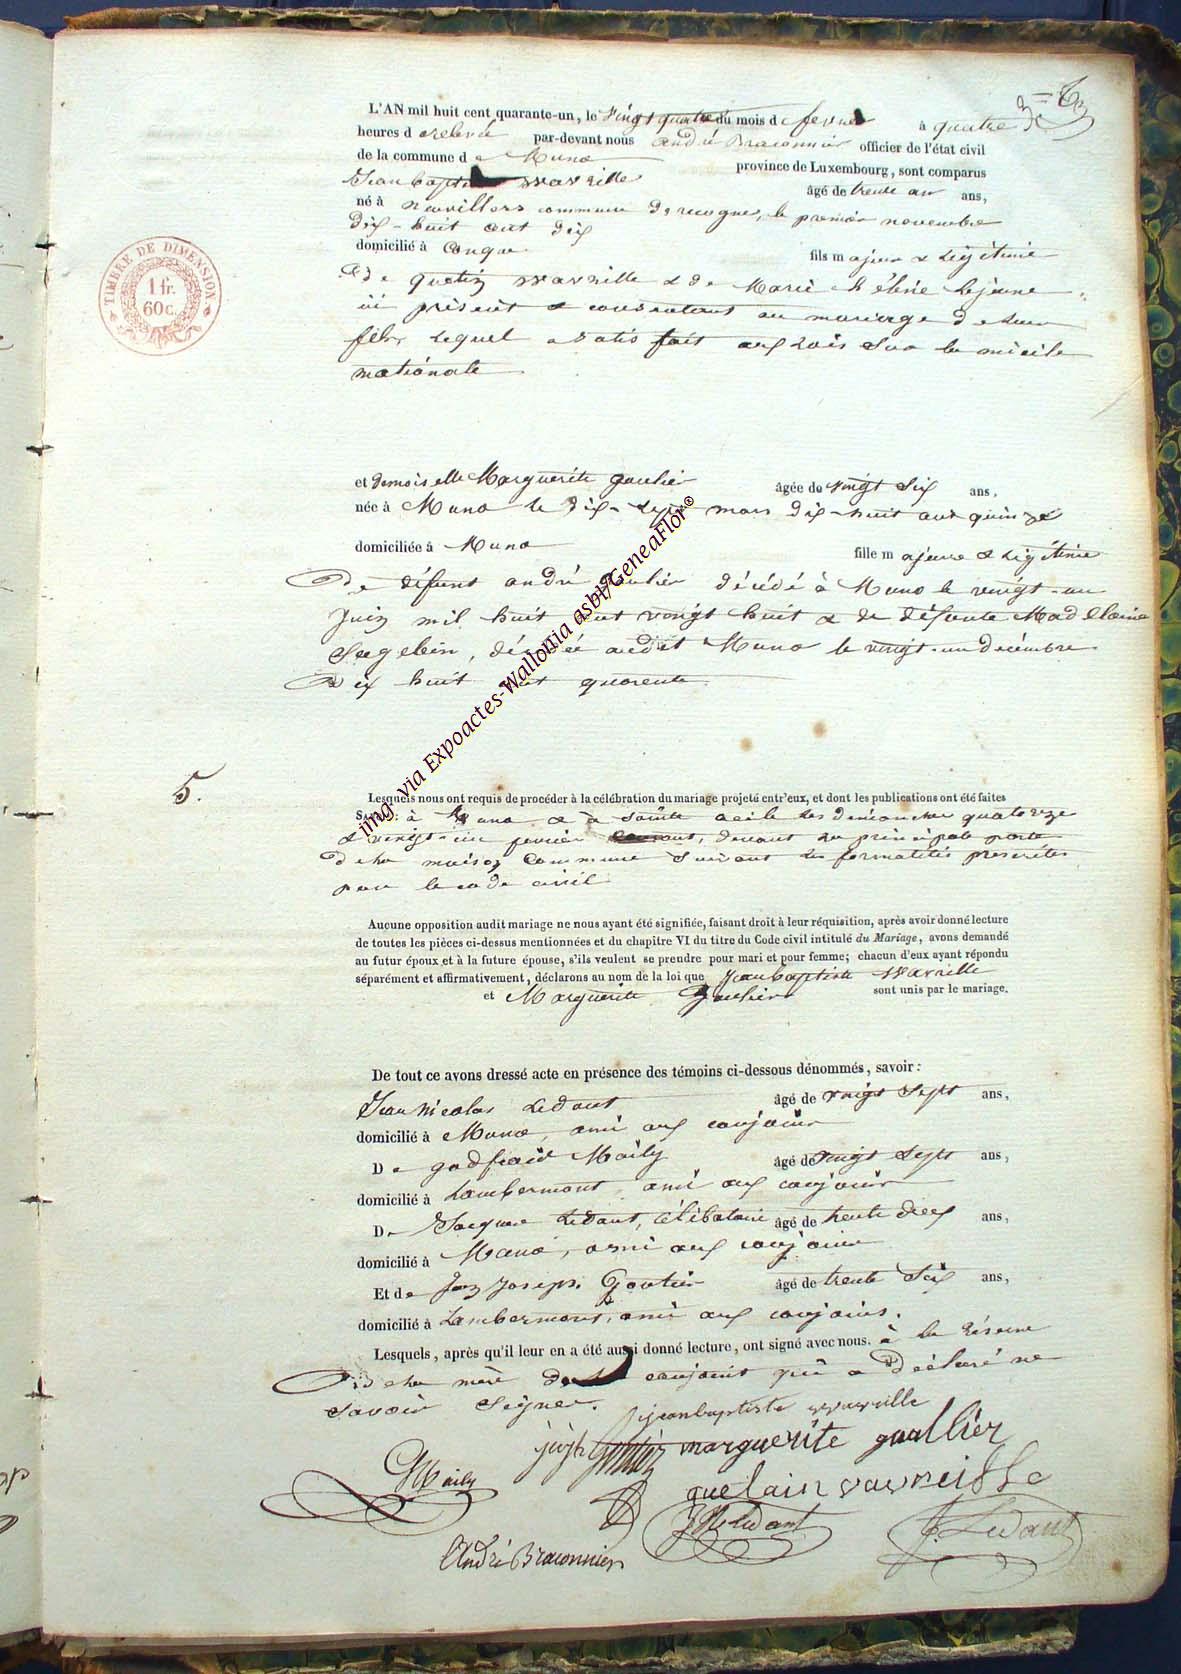 L'AN mil huit cent quarante-un, le vingt quatre du mois de fevrier à quatre
heures de relevée par-devant nous andré Braconnier officier de l'état civil
de la commune de Muno province de Luxembourg, sont comparus
Jean baptiste wavreille âgé de trente un ans,
né à neuvillers commune de recogne, le premier novembre
dix-huit cent dix
domicilié à fils majeur & légitime
de wavreille & de Marie hélène Lejeune
ici présent & consentant au mariage de leur
fils, Lequel a satisfait aux Lois Sur la milice
nationale
et demoiselle Marguerite gaulier âgée de vingt six ans,
née à Muno le dix-Sept mars dix-huit cent quinze
domiciliée à Muno fille majeure & Légitime
De défunt andré gaulier décédé à Muno le vingt-un
Juin mil huit cent vingt huit & de défunte Madelaine
décédée audit Muno le vingt-un decembre
Dix huit cent quarente
5.
Lesquels nous ont requis de procéder à la célébration du mariage projeté entr'eux, et dont les publications ont été faites
SAVOIR: à Muno & à Sainte Cécile les dimanches quatorze
& vingt-un fevrier courant, devant la principale porte
de la maison Commune Suivant les formalités prescrites
par le code civil
Aucune opposition audit mariage ne nous ayant été signifiée, faisant droit à leur réquisition, après avoir donné lecture
de toutes les pièces ci-dessus mentionnées et du chapitre VI du titre du Code civil intitulé du Mariage, avons demandé
au futur époux et à la future épouse, s'ils veulent se prendre pour mari et pour femme; chacun d'eux ayant répondu
séparément et affirmativement, déclarons au nom de la loi que Jean baptiste wavreille
et Marguerite Gaulier sont unis par le mariage.
De tout ce avons dressé acte en présence des témoins ci-dessous dénommés, savoir:
Jean Nicolas Ledant âgé de vingt Sept ans,
domicilié à Muno, ami aux conjoins
De godfroid Maily âgé de vingt Sept ans,
domicilié à Lambermont, ami aux conjoins
De Jacques Ledant, célibataire âgé de trente deux ans,
domicilié à Muno, ami aux conjoins
Et de Jean Joseph Goutier âgé de trente Six ans,
domicilié à Lambermont, ami aux conjoins.
Lesquels, après qu'il leur en a été aussi donné lecture, ont signé avec nous. à la réserve
de la mère du conjoint qui a déclaré ne
savoir Signer.
jeanbaptiste wavreille
marguerite gaullier
GMaily
JNLedant
J. Ledant
André Braconnier
TIMBRE DE DIMENSION
1 fr.
60 c.
img via Expoactes-Wallonia asbl/GeneaFlor©